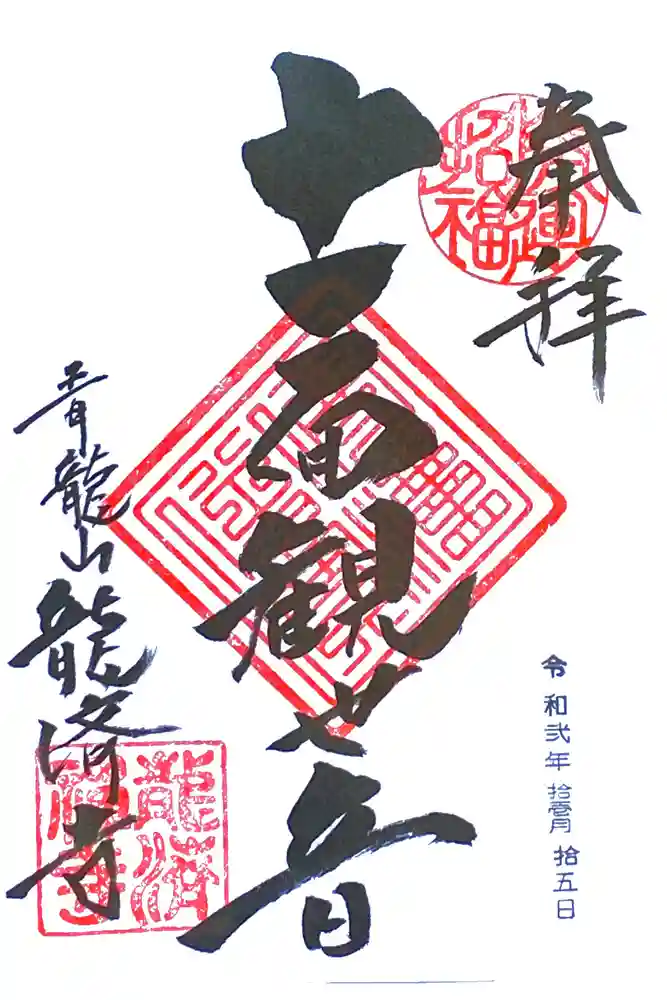 奉拝
開運招福
十一面観世音
令和弐年拾壱月拾五日
青龍山龍済寺
龍済禅寺